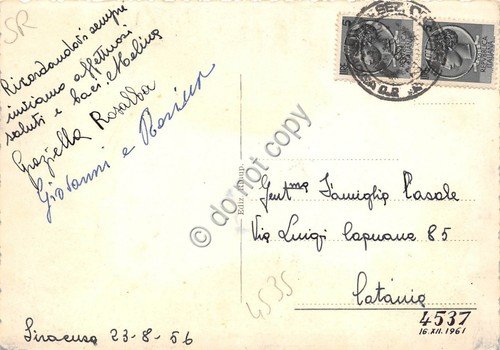 SR
Ricordandovi sempre
inviamo affettuosi
saluti e baci Melina
Graziella Rosalba
Giovanni e
do not copy
Ediz.
Gent.ma Famiglia Casale
Via Luigi Capuana 85
Catania
4535
4537
16.XII.1961
Siracusa 23-8-56